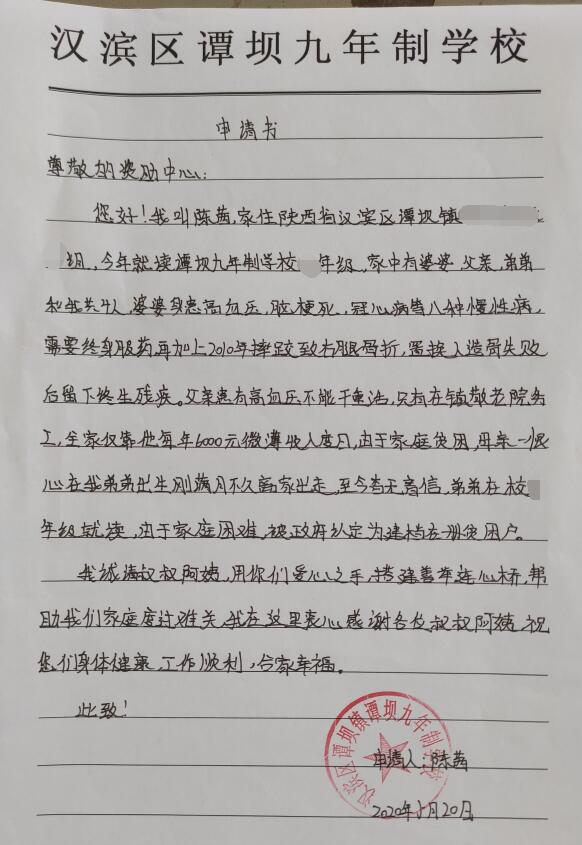 汉滨区谭坝九年制学校
申请书
尊敬的奖励中心:
您好!我叫陈茜,家住陕西省汉滨区谭坝镇
组,今年就读谭坝九年制学校 年级,家中有婆婆 父亲,弟弟
和我共4人,婆婆身患高血压,脑梗死,冠心病等八种慢性病,
需要终身服药再加上2010年摔跤致右腿骨折,置换人造骨失败
后留下终生残疾。父亲患有高血压不能干重活,只有在镇敬老院务
工,全家仅靠他每年6000元微薄收入度日,由于家庭贫困,母亲一恨
心在我弟弟出生刚满月不久离家出走,至今杳无音信,弟弟在校
年级就读,由于家庭困难,被政府认定为建档在册贫困户。
我诚请叔叔阿姨,用你们爱心之手,搭建善举连心桥,帮
助我们家庭度过难关,我在这里衷心感谢各位叔叔阿姨,祝
您们身体健康 工作顺利,合家幸福。
此致!
汉滨区谭坝镇谭坝九年制学校
申请人:陈茜
2020年5月20日